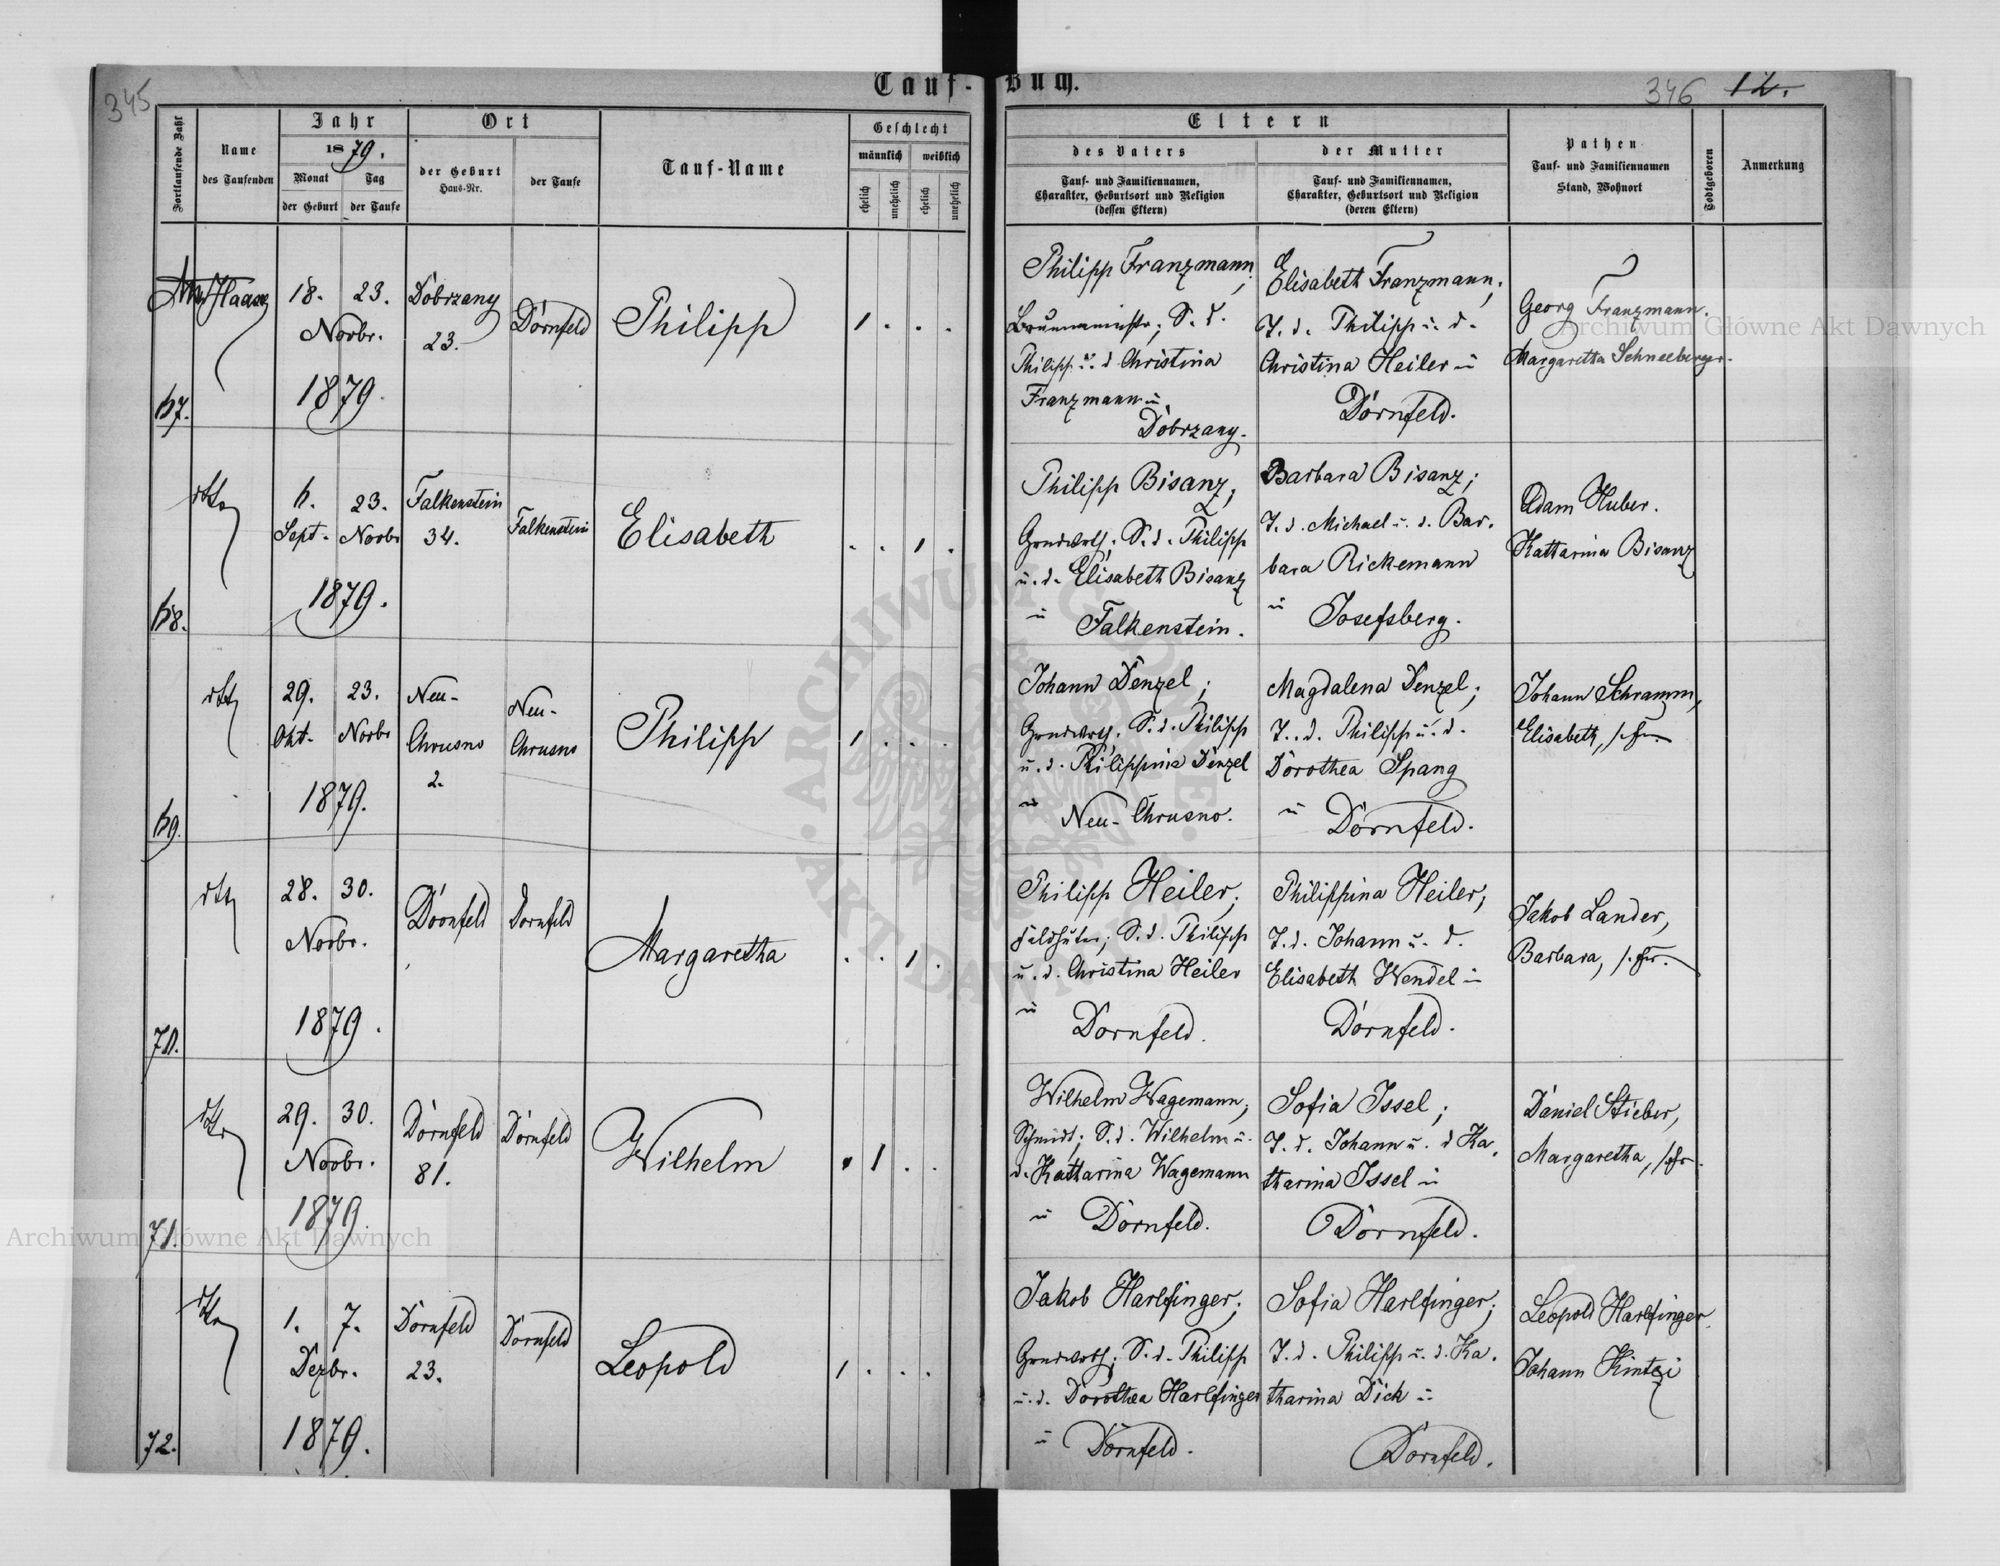 Tauf-Buch.
345
346 12.
Fortlaufende Zahl
Name
des Taufenden
Jahr
1879.
Monat
Tag
der Geburt
der Taufe
Ort
der Geburt
Haus-Nr.
der Taufe
Tauf-Name
Geschlecht
männlich
weiblich
ehelich
unehelich
ehelich
unehelich
Eltern
des Vaters
Tauf- und Familiennamen,
Charakter, Geburtsort und Religion
(dessen Eltern)
der Mutter
Tauf- und Familiennamen,
Charakter, Geburtsort und Religion
(deren Eltern)
Pathen
Tauf- und Familiennamen
Stand, Wohnort
Todtgeboren
Anmerkung
67.
Haase
18. 23.
Novbr.
1879.
Dobrzany
23.
Dornfeld
Philipp
1 . . .
Philipp Franzmann;
S. d.
Philipp u. d. Christina
Franzmann in
Dobrzany.
Elisabeth Franzmann;
T. d. Philipp u. d.
Christina Heiler in
Dornfeld.
Georg Franzmann.
Margaretha Schneeberger.
68.
6. 23.
Sept. Novbr
1879.
Falkenstein
34.
Falkenstein
Elisabeth
. . 1 .
Philipp Bisanz;
Grundwrth; S. d. Philipp
u. d. Elisabeth Bisanz
in Falkenstein.
Barbara Bisanz;
T. d. Michael u. d. Bar.
bara Rickemann
in Josefsberg.
Adam Huber.
Kattarina Bisanz
69.
29. 23.
Okt. Novbr
1879.
Neu-
Chrusno
2.
Neu-
Chrusno
Philipp
1 . . .
Johann Denzel;
Grundwrth; S. d. Philipp
u. d. Philippina Denzel
in Neu-Chrusno.
Magdalena Denzel;
T. d. Philipp u. d.
Dorothea Spang
in Dornfeld.
Johann Schramm,
Elisabeth,
70.
28. 30.
Novbr.
1879.
Dornfeld
Dornfeld
Margaretha
. . 1 .
Philipp Heiler;
Feldhüter; S. d. Philipp
u. d. Christina Heiler
in Dornfeld.
Philippina Heiler;
T. d. Johann u. d.
Elisabeth Wendel in
Dornfeld.
Jakob Lander,
Barbara,
71.
29. 30.
Novbr.
1879.
Dornfeld
81.
Dornfeld
Wilhelm
. 1 . .
Wilhelm Wagemann;
Schmidt; S. d. Wilhelm u.
d. Kattarina Wagemann
in Dornfeld.
Sofia Issel;
T. d. Johann u. d Ka.
tharina Issel in
Dornfeld.
Daniel Stieber,
Margaretha,
72.
1. 7.
Dezbr.
1879.
Dornfeld
23.
Dornfeld
Leopold
1 . . .
Jakob Harlfinger;
Grundwrth; S. d. Philipp
u. d. Dorothea Harlfinger
in Dornfeld.
Sofia Harlfinger;
T. d. Philipp u. d. Ka.
tharina Dick in
Dornfeld.
Leopold Harlfinger.
Johann Kintzi
Archiwum Główne Akt Dawnych
Archiwum Główne Akt Dawnych